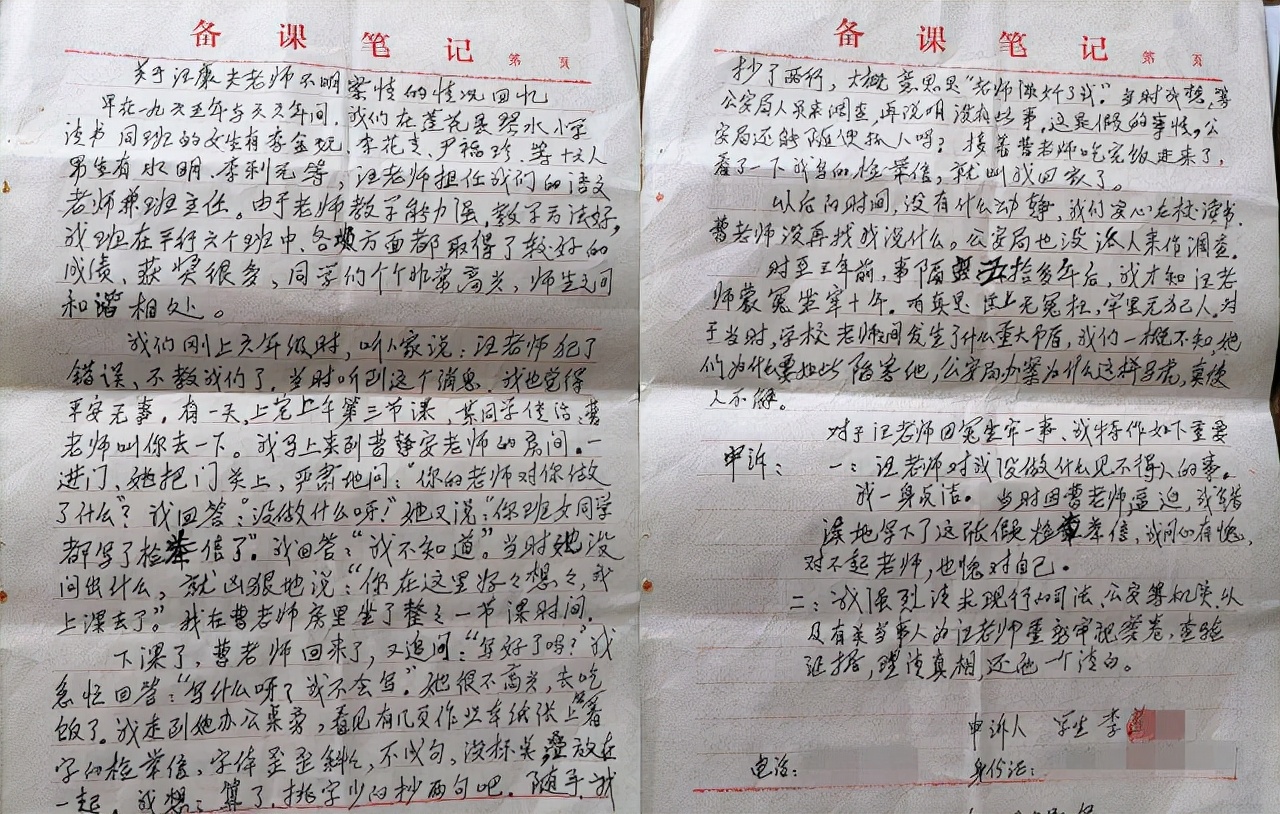 备课笔记
第 页
关于汪康夫老师不明案情的情况回忆
早在一九六五年与六六年间,我们在莲花县琴水小学
读书 同班的女生有李金玩、李花支、尹福珍、等十六人
男生有水明、李利元等,汪老师担任我们的语文
老师兼班主任。由于老师教学能力强,教学方法好,
我班在平行六个班中、各项方面都取得了较好的
成绩、获奖很多,同学们个个非常高兴,师生之间
和谐相处。
我们刚上六年级时,听人家说:汪老师犯了
错误、不教我们了。当时听到这个消息,我也觉得
平安无事。有一天,上完上午第三节课,某同学传话:曹
老师叫你去一下。我马上来到曹静安老师的房间。一
进门、她把门关上,严肃地问:“你的老师对你做
了什么”?我回答:“没做什么呀!”她又说:“你班女同学
都写了检举信了”。我回答:“我不知道”。当时她没
问出什么,就凶狠地说:“你在这里好々想々,我
上课去了”。我在曹老师房里坐了整々一节课时间。
下课了,曹老师回来了,又追问:“写好了吗?”我
急忙回答:“写什么呀?我不会写”。她很不高兴,去吃
饭了。我走到她办公桌旁,看见有几页作业本纸张上署
字的检举信,字体歪歪斜斜,不成句,没标头,叠放在
一起。我想:算了,挑字少的抄两句吧。随手,我
备课笔记
第 页
抄了两行,大概意思是“老师做奸了我”。当时我想,等
公安局人员来调查,再说明没有此事,这是假的事情。公
安局还能随便抓人吗?接着曹老师吃完饭进来了,
看了一下我写的检举信,就叫我回家了。
以后的时间,没有什么动静,我们安心在校读书。
曹老师没再找我说什么。公安局也没派人来作调查。
时至三年前,事隔五拾多年后,我才知汪老
师蒙冤坐牢十年。有真是:世上无冤枉,牢里无犯人。对
于当时,学校老师间发生了什么重大矛盾,我们一概不知,她
们为什么要如此陷害他,公安局办案为什么这样马虎,真使
人不解。
对于汪老师因冤坐牢一事、我特作如下重要
申诉: 一:汪老师对我没做什么见不得人的事。
我一身贞洁。当时因曹老师逼迫,我错
误地写下了这张假检举信,我问心有愧,
对不起老师,也愧对自己。
二:我强烈请求现行的司法、公安等机关.以
及有关当事人为汪老师重新审视案卷,查验
证据,理清真相,还他一个清白。
申诉人 学生 李
电话: 身份证: